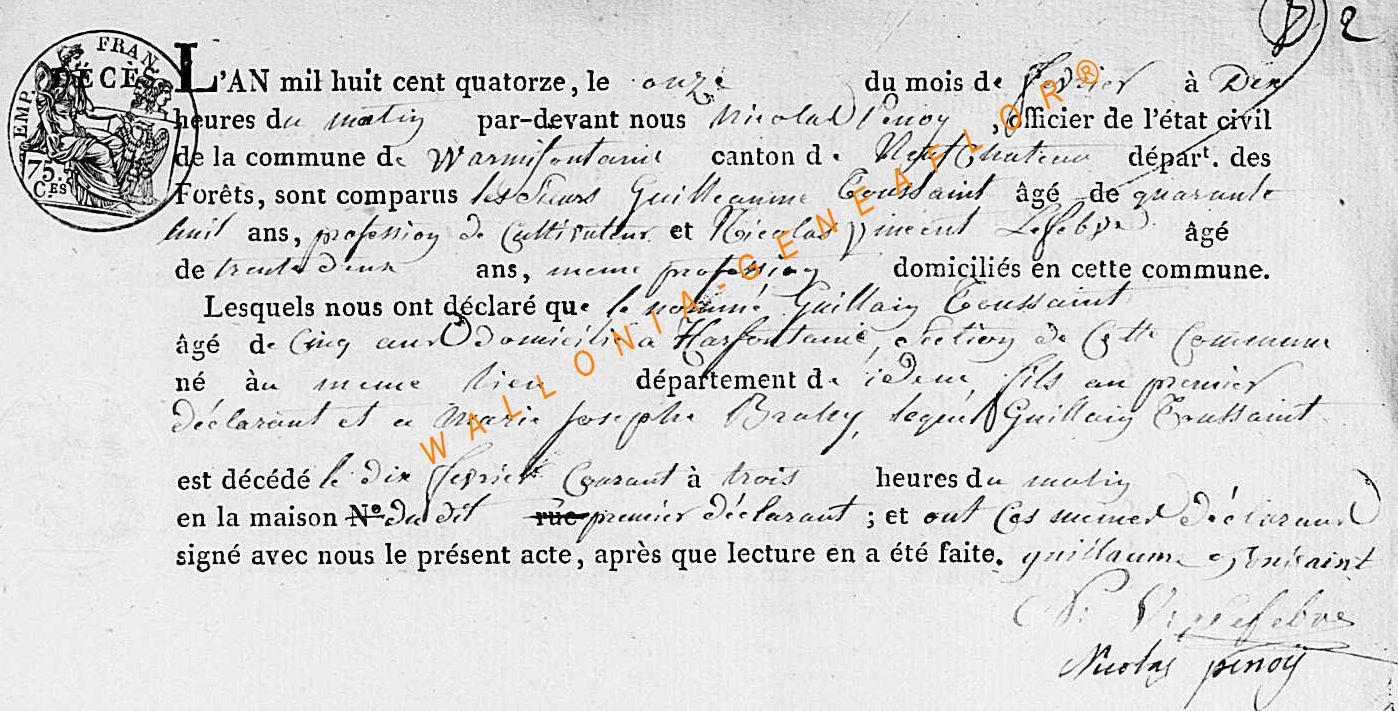 2
EMP. FRAN.
75.
C.ES
DÉCÈS
L'AN mil huit cent quatorze, le onze du mois de fevrier à Dix
heures du matin par-devant nous Nicolas Pinoy, officier de l'état civil
de la commune de Warmifontaine canton de Neufchateau départ. des
Forêts, sont comparus les Sieurs Guilleaume Toussaint âgé de quarante
huit ans, profession de Cultivateur et Nicolas Vincent Lefebvre âgé
de trente deux ans, meme profession domiciliés en cette commune.
Lesquels nous ont déclaré que le nommé Guillain Toussaint
âgé de Cinq ans Domicilié a Harfontaine, Section de Cette Commune
né au meme lieu département de idem fils au premier
déclarant et a Marie Josephe, lequel Guillain Toussaint
est décédé le dix fevrier Courant à trois heures du matin
en la maison No. du dit rue premier déclarant; et ont Ces memes déclarans
signé avec nous le présent acte, après que lecture en a été faite. guillaume Tousaint
N: V: Lefebvre
Nicolas pinoy
WALLONIA-GENEAFLOR®